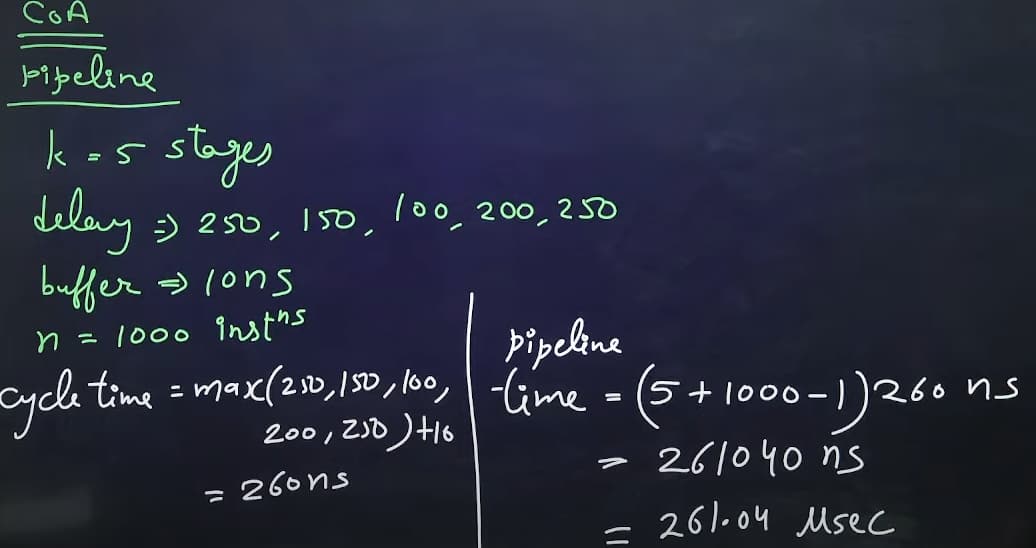 COA
pipeline
k = 5 stages
delay ⇒ 250, 150, 100, 200, 250
buffer ⇒ 10ns
n = 1000 instⁿˢ
cycle time = max(250, 150, 100,
200, 250)+10
= 260ns
pipeline
time = (5 + 1000 - 1) 260 ns
= 261040 ns
= 261.04 μsec